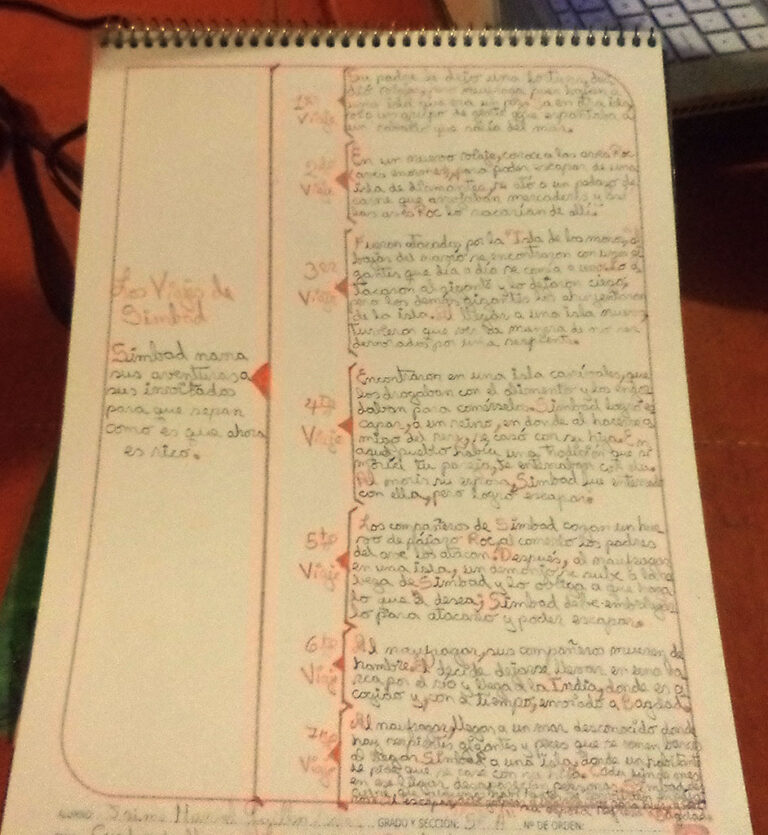 Los Viajes de
Simbad
Simbad narra
sus aventuras a
sus invitados
para que sepan
como es que ahora
es rico.
1er
Viaje
Su padre le dejo una
una isla que era un pez, ya en otra isla
vio un grupo de gente que
un caballo que salía del mar.
2do
Viaje
En un nuevo viaje, conoce a las aves Roc
(aves enormes), para poder escapar de una
isla de diamantes, se ató a un pedazo de
carne que arrojaban mercaderes y así
las aves Roc lo sacarían de allí.
3er
Viaje
Fueron atacados por la "Isla de los monos", al
bajar del barco se encontraron con un gi
gantes que día a día se comía a
tacaron al gigante y lo dejaron ciego,
pero los demás gigantes los ahuyentaron
de la isla. Al llegar a una isla nueva
tuvieron que ver la manera de no ser
devorados por una serpiente.
4to
Viaje
Encontraron en una isla caníbales, que
los drogaban con el alimento y los engor
daban para comérselos. Simbad logró es
capar, a un reino, en donde al hacerse a
migo del rey, se casó con su hija. En
aquel pueblo había una tradición que si
moría tu pareja, te enterraban con ella.
Al morir su esposa, Simbad fue enterrado
con ella, pero logró escapar.
5to
Viaje
Los compañeros de Simbad cogen un hue
vo de pájaro Roc, al comerlo los padres
del ave los atacan. Después, al naufragar
en una isla, un demonio se sube a la
de Simbad y lo obliga a que haga
lo que él desea; Simbad debe embriagar
lo para atacarlo y poder escapar.
6to
Viaje
Al naufragar, sus compañeros mueren de
hambre. Él decide dejarse llevar en una ba
rca por el río y llega a la India, donde es a
cogido y, con el tiempo, enviado a Bagdad.
7mo
Viaje
Al naufragar, llegan a un mar desconocido donde
hay serpientes gigantes y peces que se comen barcos
al llegar Simbad a una isla, donde un habitante
le pide que se case con su hija. Cada
en ese lugar
GRADO Y SECCIÓN: 5º A Nº DE ORDEN: